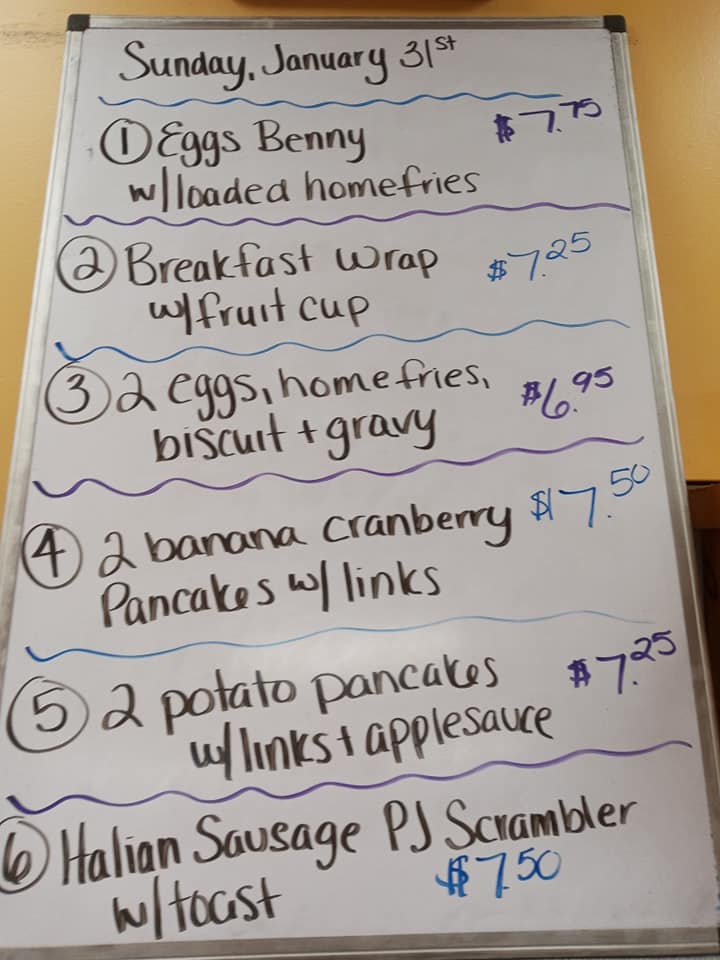 Sunday, January 31st
① Eggs Benny $7.75
w/loaded homefries
② Breakfast wrap $7.25
w/fruit cup
③ 2 eggs, homefries, $6.95
biscuit + gravy
④ 2 banana cranberry $7.50
Pancakes w/ links
⑤ 2 potato pancakes $7.25
w/links + applesauce
⑥ Italian Sausage PJ Scrambler
w/toast $7.50